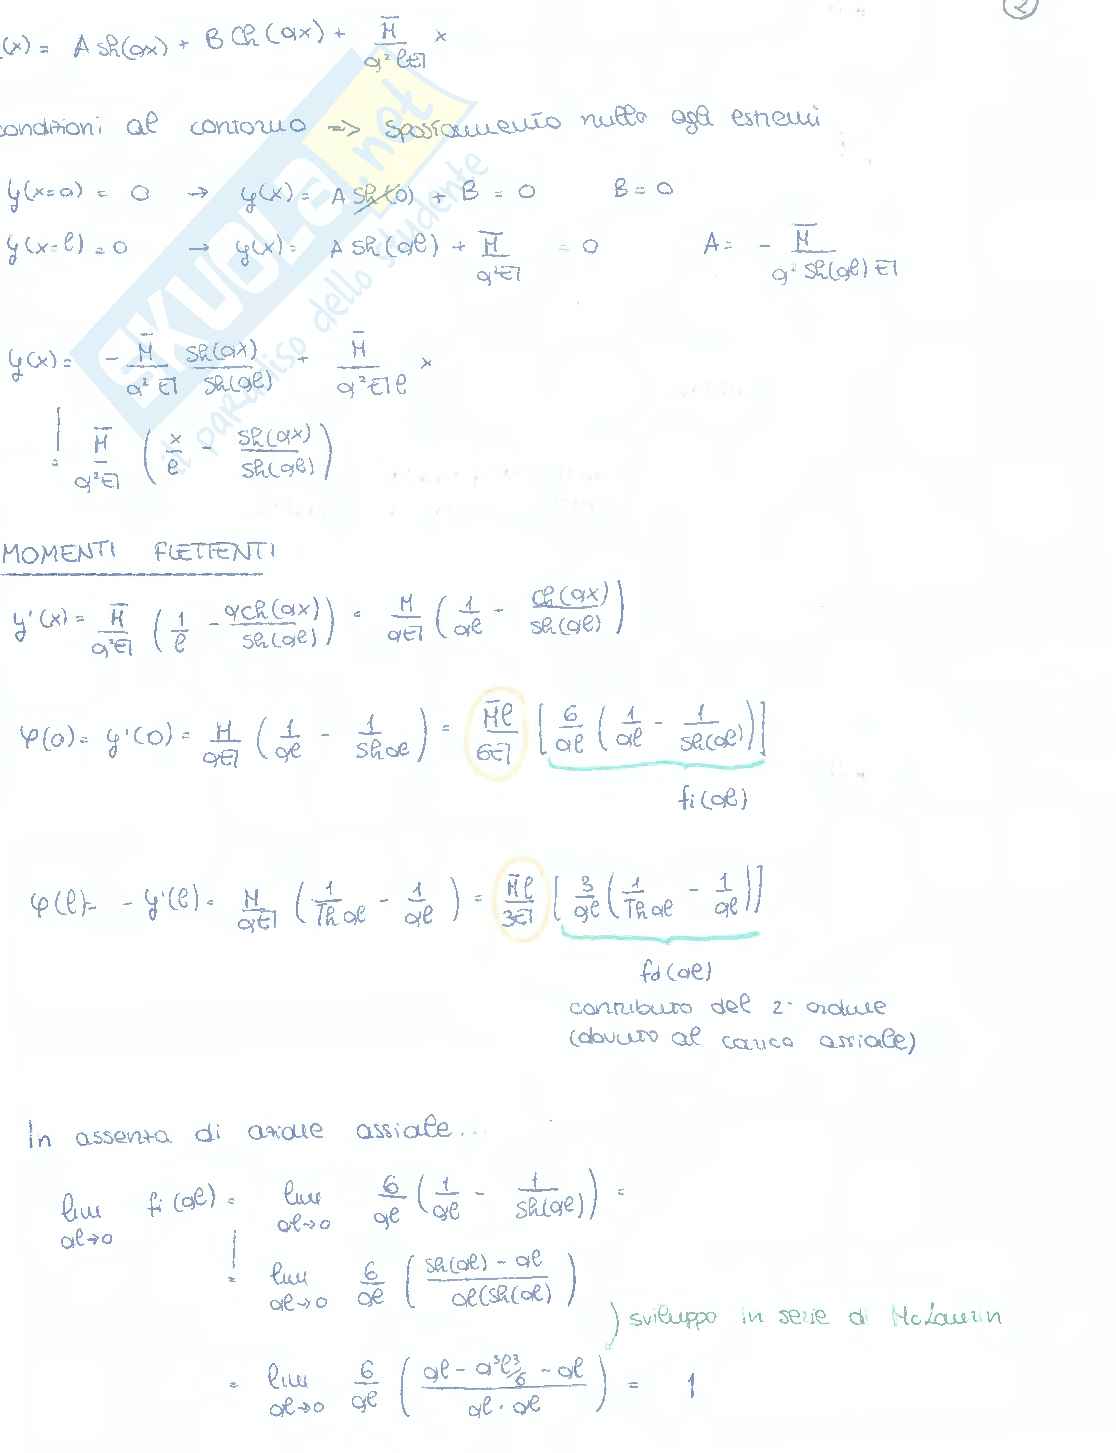 2
(x) = A sh(ax) + B Ch(ax) + M̄/(a²lEI) x
condizioni al contorno => spostamento nullo agli estremi
y(x=0) = 0 → y(x) = A sh(0) + B = 0 B = 0
y(x=l) = 0 → y(x) = A sh(al) + M̄/(a²EI) = 0 A = - M̄/(a² sh(al) EI)
y(x) = - M̄/(a² EI) sh(ax)/sh(al) + M̄/(a²EIl) x
= M̄/(a²EI) (x/l - sh(ax)/sh(al))
MOMENTI FLETTENTI
y'(x) = M̄/(a²EI) (1/l - a ch(ax)/sh(al)) = M/(aEI) (1/al - ch(ax)/sh(al))
φ(0) = y'(0) = M/(aEI) (1/al - 1/sh al) = M̄l/6EI [6/al (1/al - 1/sh(al))]
fi(al)
φ(l) = - y'(l) = M/(aEI) (1/Th al - 1/al) = M̄l/3EI [3/al (1/Th al - 1/al)]
fd(al)
contributo del 2° ordine
(dovuto al carico assiale)
In assenza di azione assiale...
lim al→0 fi(al) = lim al→0 6/al (1/al - 1/sh(al)) =
= lim al→0 6/al ((sh(al) - al)/(al(sh(al)))
) sviluppo in serie di McLaurin
= lim al→0 6/al ((al - a³l³/6 - al)/(al · al)) = 1
SKUOLA.net
il paradiso dello studente